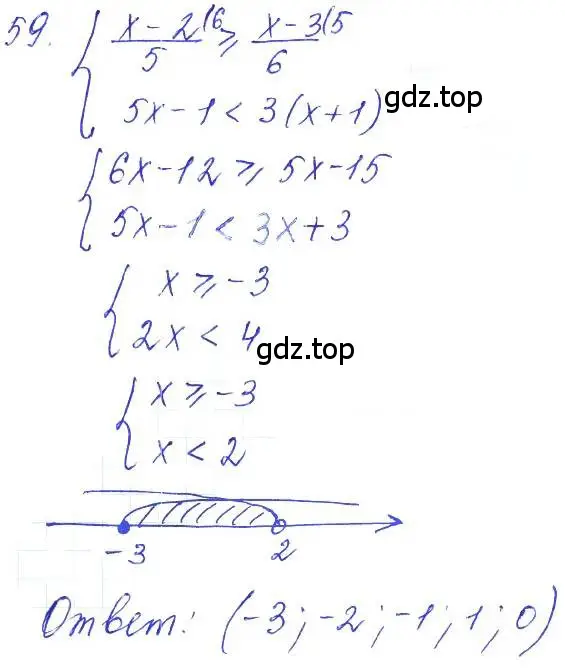 59. { (x-2)/5 (6 ≥ (x-3)/6 (5
5x-1 < 3(x+1)
gdz.top
{ 6x-12 ≥ 5x-15
5x-1 < 3x+3
{ x ≥ -3
2x < 4
gdz.top
{ x ≥ -3
x < 2
-3 2
Ответ: (-3; -2; -1; 1; 0)